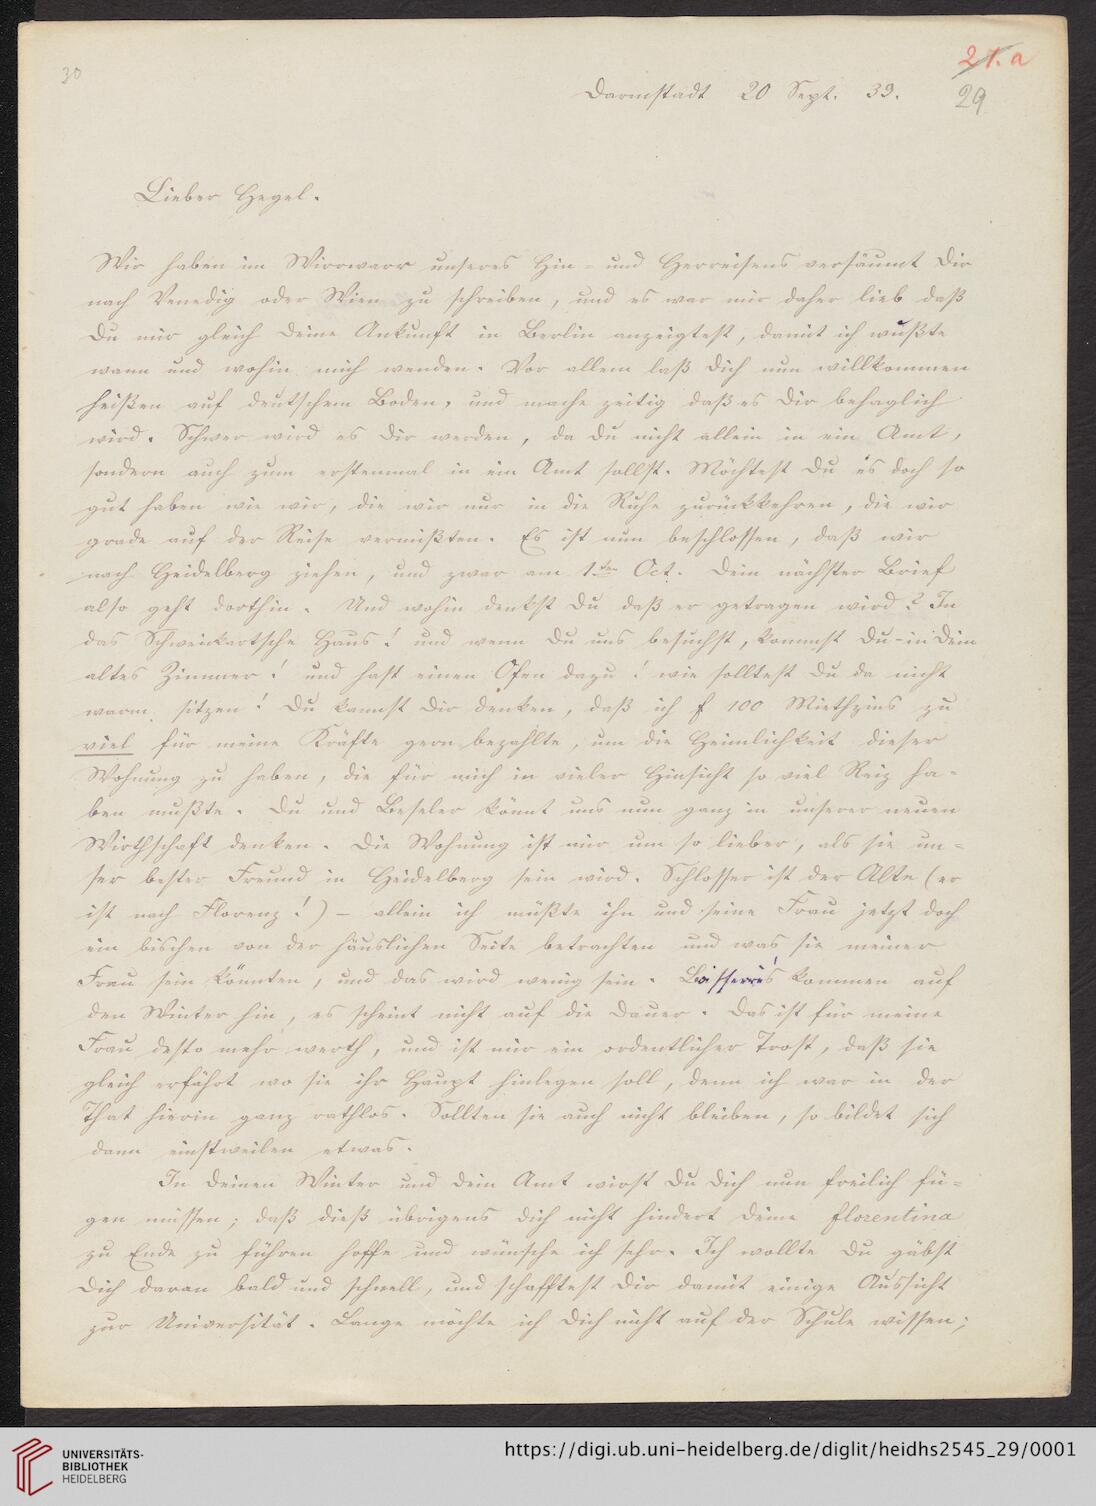 30
21. a
Darmstadt 20 Sept. 39.
29
Lieber Hegel.
Wir haben im Wirrwarr unseres Hin- und Herreisens versäumt Dir
nach Venedig oder Wien zu schreiben, und es war mir daher lieb daß
Du mir gleich Deine Ankunft in Berlin anzeigtest, damit ich wußte
wann und wohin mich wenden. Vor allem laß Dich nun willkommen
heißen auf deutschem Boden, und mache zeitig daß es Dir behaglich
wird. Schwer wird es Dir werden, da Du nicht allein in ein Amt,
sondern auch zum erstenmal in ein Amt sollst. Möchtest Du es doch so
gut haben wie wir, die wir nur in die Ruhe zurückkehren, die wir
grade auf der Reise vermißten. Es ist nun beschlossen, daß wir
nach Heidelberg ziehen, und zwar am 1ten Oct. Dein nächster Brief
also geht dorthin. Und wohin denkst Du daß er getragen wird? In
das Schweickartsche Haus! und wenn Du uns besuchst, kommst Du in Dein
altes Zimmer! und hast einen Ofen dazu! wie solltest Du da nicht
warm sitzen! Du kannst Dir denken, daß ich f 100 Miethzins zu
viel für meine Kräfte gern bezahlte, um die Heimlichkeit dieser
Wohnung zu haben, die für mich in vieler Hinsicht so viel Reiz ha-
ben mußte. Du und Beseler könnt uns nun ganz in unserer neuen
Wirthschaft denken. Die Wohnung ist mir um so lieber, als sie un-
ser bester Freund in Heidelberg sein wird. Schlosser ist der Alte (er
ist nach Florenz!) – allein ich müßte ihn und seine Frau jetzt doch
ein bischen von der häuslichen Seite betrachten und was sie meiner
Frau sein könnten, und das wird wenig sein. Boisserée's kommen auf
den Winter hin, es scheint nicht auf die Dauer. Das ist für meine
Frau desto mehr werth, und ist mir ein ordentlicher Trost, daß sie
gleich erfährt wo sie ihr Haupt hinlegen soll, denn ich war in der
That hierin ganz rathlos. Sollten sie auch nicht bleiben, so bildet sich
dann einstweilen etwas.
In Deinen Winter und Dein Amt wirst Du Dich nun freilich fü-
gen müssen; daß dieß übrigens Dich nicht hindert Deine florentina
zu Ende zu führen hoffe und wünsche ich sehr. Ich wollte Du gäbst
Dich daran bald und schnell, und schafftest Dir damit einige Aussicht
zur Universität. Lange möchte ich Dich nicht auf der Schule wissen;
UNIVERSITÄTS-
BIBLIOTHEK
HEIDELBERG
https://digi.ub.uni-heidelberg.de/diglit/heidhs2545_29/0001